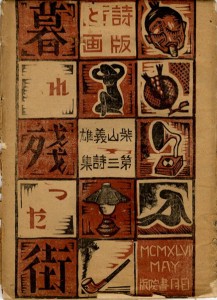 詩と版画
暮れ残つた街
柴山義雄
第三詩集
MCMXLVII
MAY